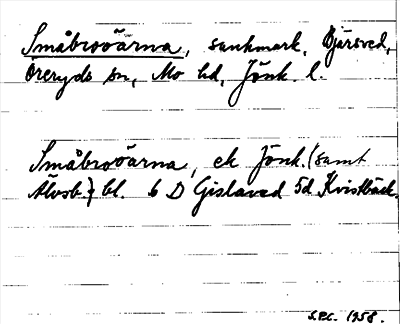 Småbrooärna, sankmark, Bjärsved,
Öreryds sn, Mo hd, Jönk. l.
Småbrooärna, ek Jönk. (samt
Älvsb.) bl. 6 D Gislaved 5d Kvistbäck.
S.P.C. 1958.